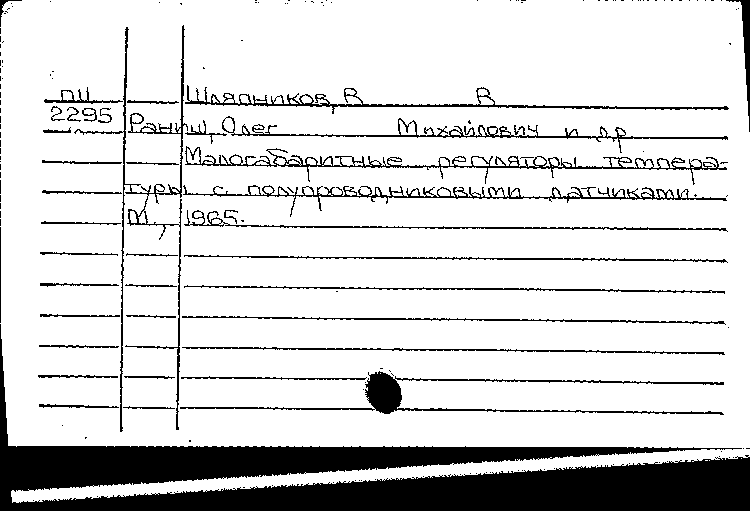 ПЦ Шляпников, В В
2295 Раниш, Олег Михайлович и др
Малогабаритные регуляторы темпера-
туры с полупроводниковыми датчиками.
М., 1965.